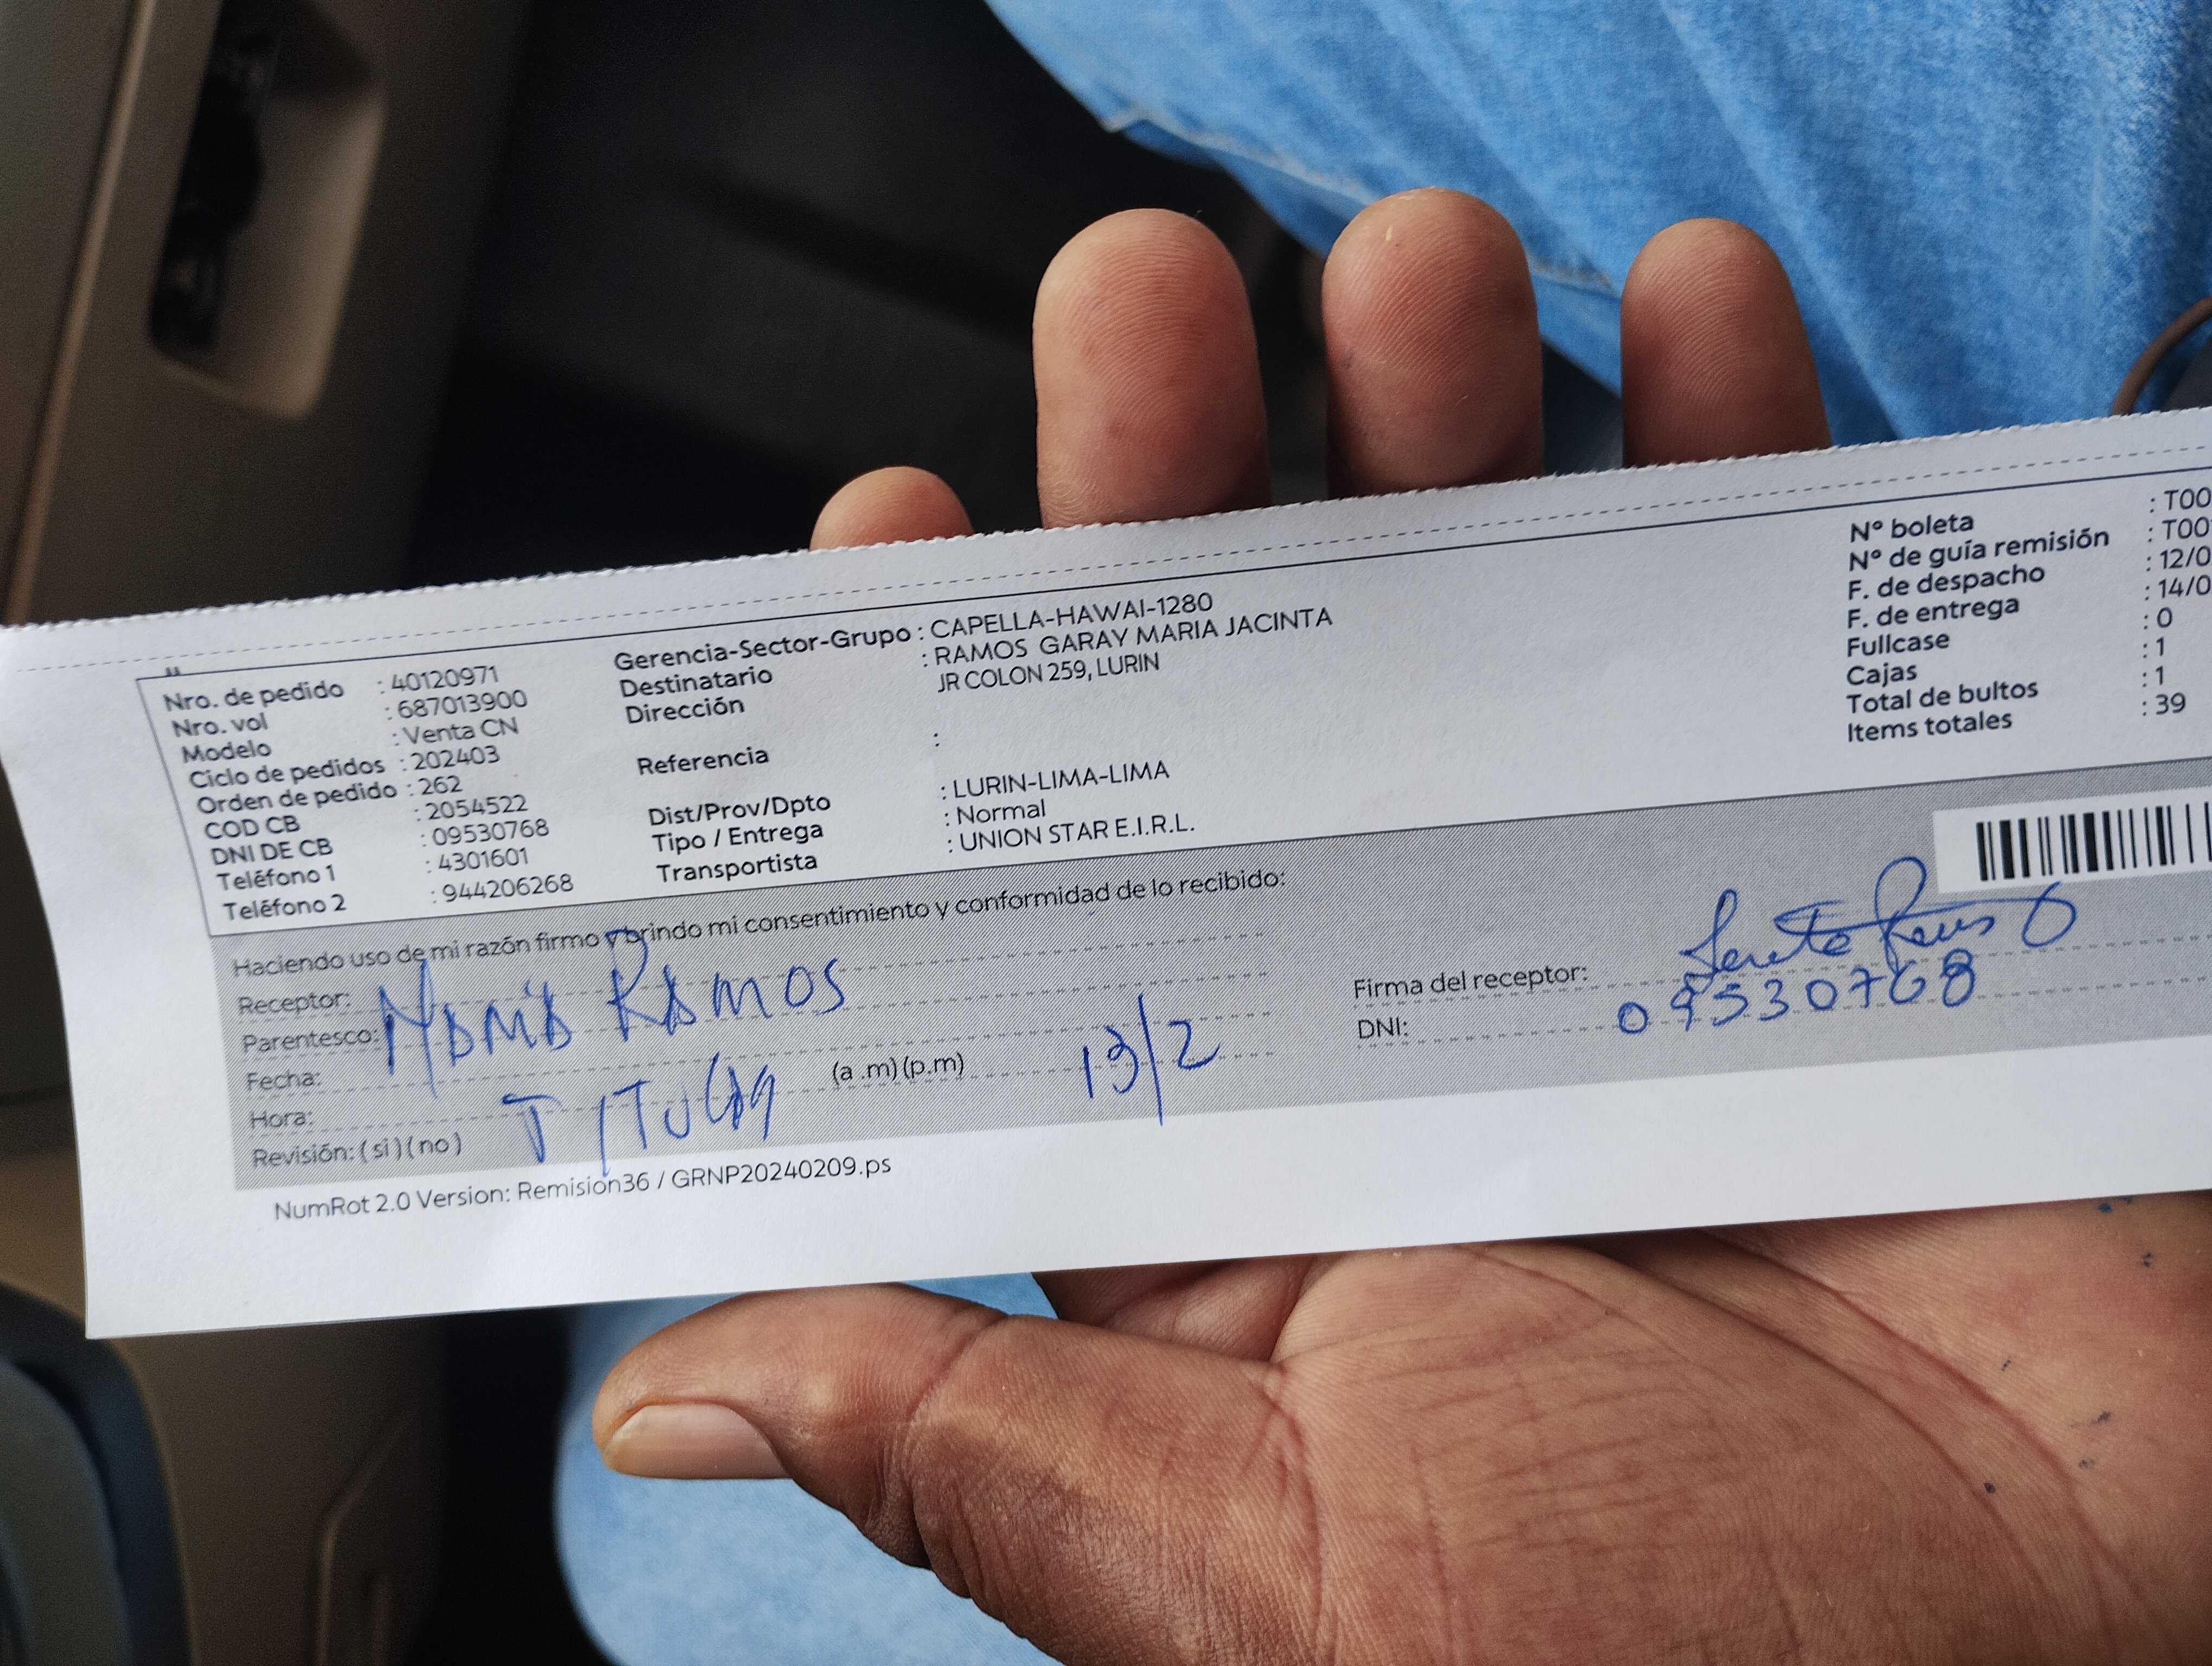 Nro. de pedido : 40120971
Nro. vol : 687013900
Modelo : Venta CN
Ciclo de pedidos : 202403
Orden de pedido : 262
COD CB : 2054522
DNI DE CB : 09530768
Teléfono 1 : 4301601
Teléfono 2 : 944206268
Gerencia-Sector-Grupo : CAPELLA-HAWAI-1280
Destinatario : RAMOS GARAY MARIA JACINTA
Dirección JR COLON 259, LURIN
Referencia :
Dist/Prov/Dpto : LURIN-LIMA-LIMA
Tipo / Entrega : Normal
Transportista : UNION STAR E.I.R.L.
N° boleta : T00
N° de guía remisión : T00
F. de despacho : 12/0
F. de entrega : 14/0
Fullcase : 0
Cajas : 1
Total de bultos : 1
Items totales : 39
Haciendo uso de mi razón firmo y brindo mi consentimiento y conformidad de lo recibido:
Receptor: MARIA RAMOS
Parentesco:
Fecha: 13/2
Hora: (a .m) (p.m)
Revisión: ( si ) ( no ) TITULAR
Firma del receptor:
DNI: 09530768
NumRot 2.0 Version: Remision36 / GRNP20240209.ps